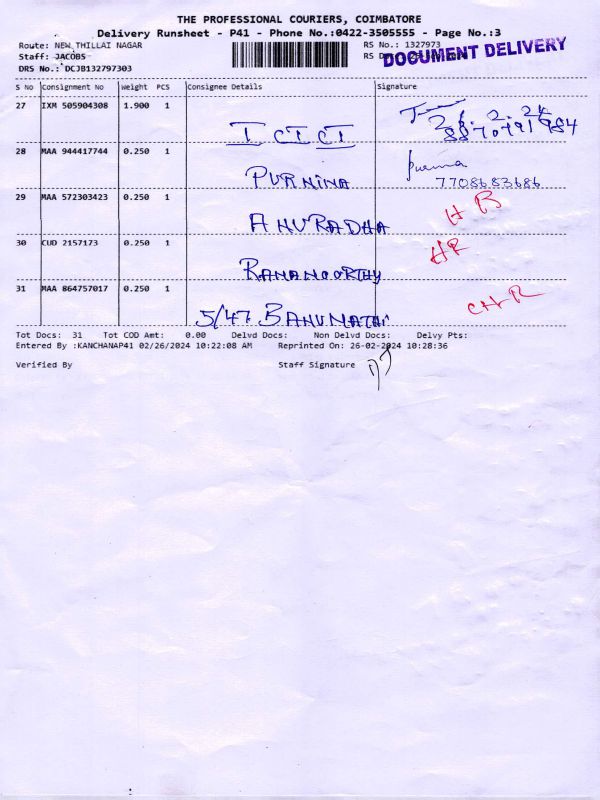 THE PROFESSIONAL COURIERS, COIMBATORE
Delivery Runsheet - P41 - Phone No.:0422-3505555 - Page No.:3
Route: NEW THILLAI NAGAR RS No.: 1327973
Staff: JACOBS RS D
DOCUMENT DELIVERY
DRS No.: DCJB132797303
S No Consignment No Weight PCS Consignee Details Signature
27 IXM 505904308 1.900 1
ICICI 26.2.24
28 MAA 944417744 0.250 1
PURNINA Purnima
7708683686
29 MAA 572303423 0.250 1
ANURADHA HR
30 CUD 2157173 0.250 1 HR
RAMAMOORTHY
31 MAA 864757017 0.250 1
5/47. BANUMATHI
Tot Docs: 31 Tot COD Amt: 0.00 Delvd Docs: Non Delvd Docs: Delvy Pts:
Entered By :KANCHANAP41 02/26/2024 10:22:08 AM Reprinted On: 26-02-2024 10:28:36
Verified By Staff Signature